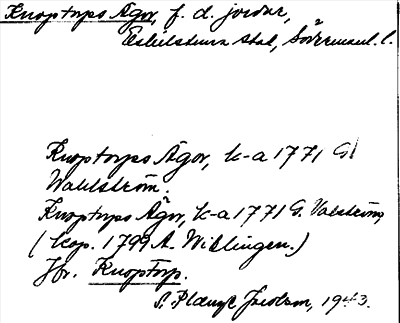 Knoptorps Ägor, f. d. jordar,
Eskilstuna stad, Södermanl. l.
Knoptorps Ägor, k-a 1771 G
Wahlström.
Knoptorps Ägor, k-a 1771 G. Valström
(kop. 1799 A. Wiblingen.)
Jfr. Knoptorp.
1943.